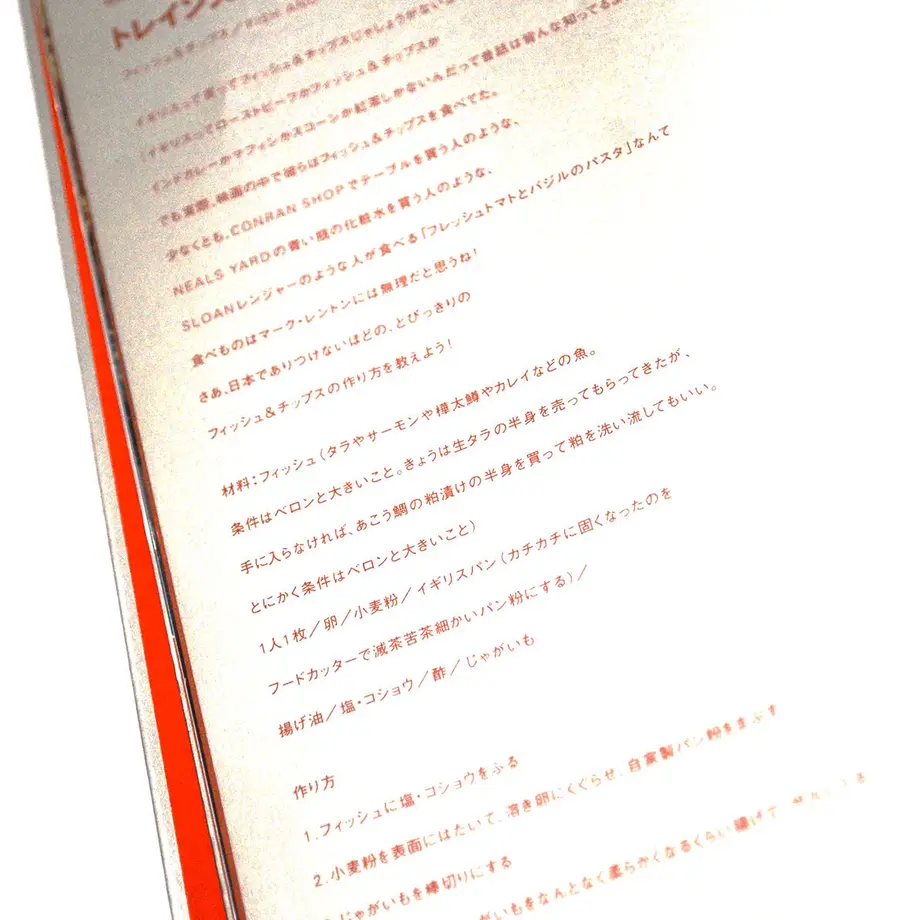 トレインス
フィッシュ&チップス/FISH AND
イギリスって言ってフィッシュ&チップスじゃしょうがない
(イギリスってローストビーフかフィッシュ&チップスか
インドカレーかマフィンかスコーンか紅茶しかないんだって昔話は皆んな知ってるよ
でも実際、映画の中で彼らはフィッシュ&チップスを食べてた。
少なくとも、CONRAN SHOPでテーブルを買う人のような、
NEALS YARDの青い瓶の化粧水を買う人のような、
SLOANレンジャーのような人が食べる「フレッシュトマトとバジルのパスタ」なんて
食べものはマーク・レントンには無理だと思うね!
さあ、日本でありつけないほどの、とびっきりの
フィッシュ&チップスの作り方を教えよう!
材料:フィッシュ(タラやサーモンや樺太鱒やカレイなどの魚。
条件はベロンと大きいこと。きょうは生タラの半身を売ってもらってきたが、
手に入らなければ、あこう鯛の粕漬けの半身を買って粕を洗い流してもいい。
とにかく条件はベロンと大きいこと)
1人1枚/卵/小麦粉/イギリスパン(カチカチに固くなったのを
フードカッターで滅茶苦茶細かいパン粉にする)/
揚げ油/塩・コショウ/酢/じゃがいも
作り方
1.フィッシュに塩・コショウをふる
2.小麦粉を表面にはたいて、溶き卵にくぐらせ、自家製パン粉をまぶす
じゃがいもを棒切りにする
がいもをなんとなく柔らかくなるくらい揚げて